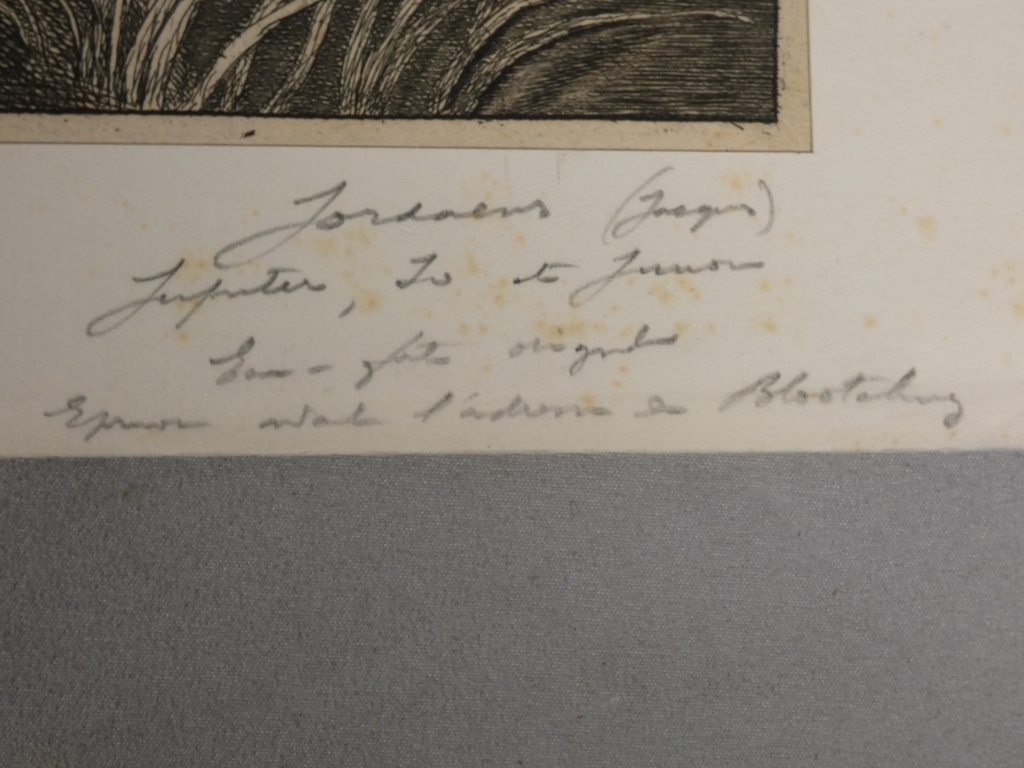 Jordaens (Jacques)
Jupiter, Io et Junon
Eau-forte originale
Epreuve avant l'adresse de Blooteling